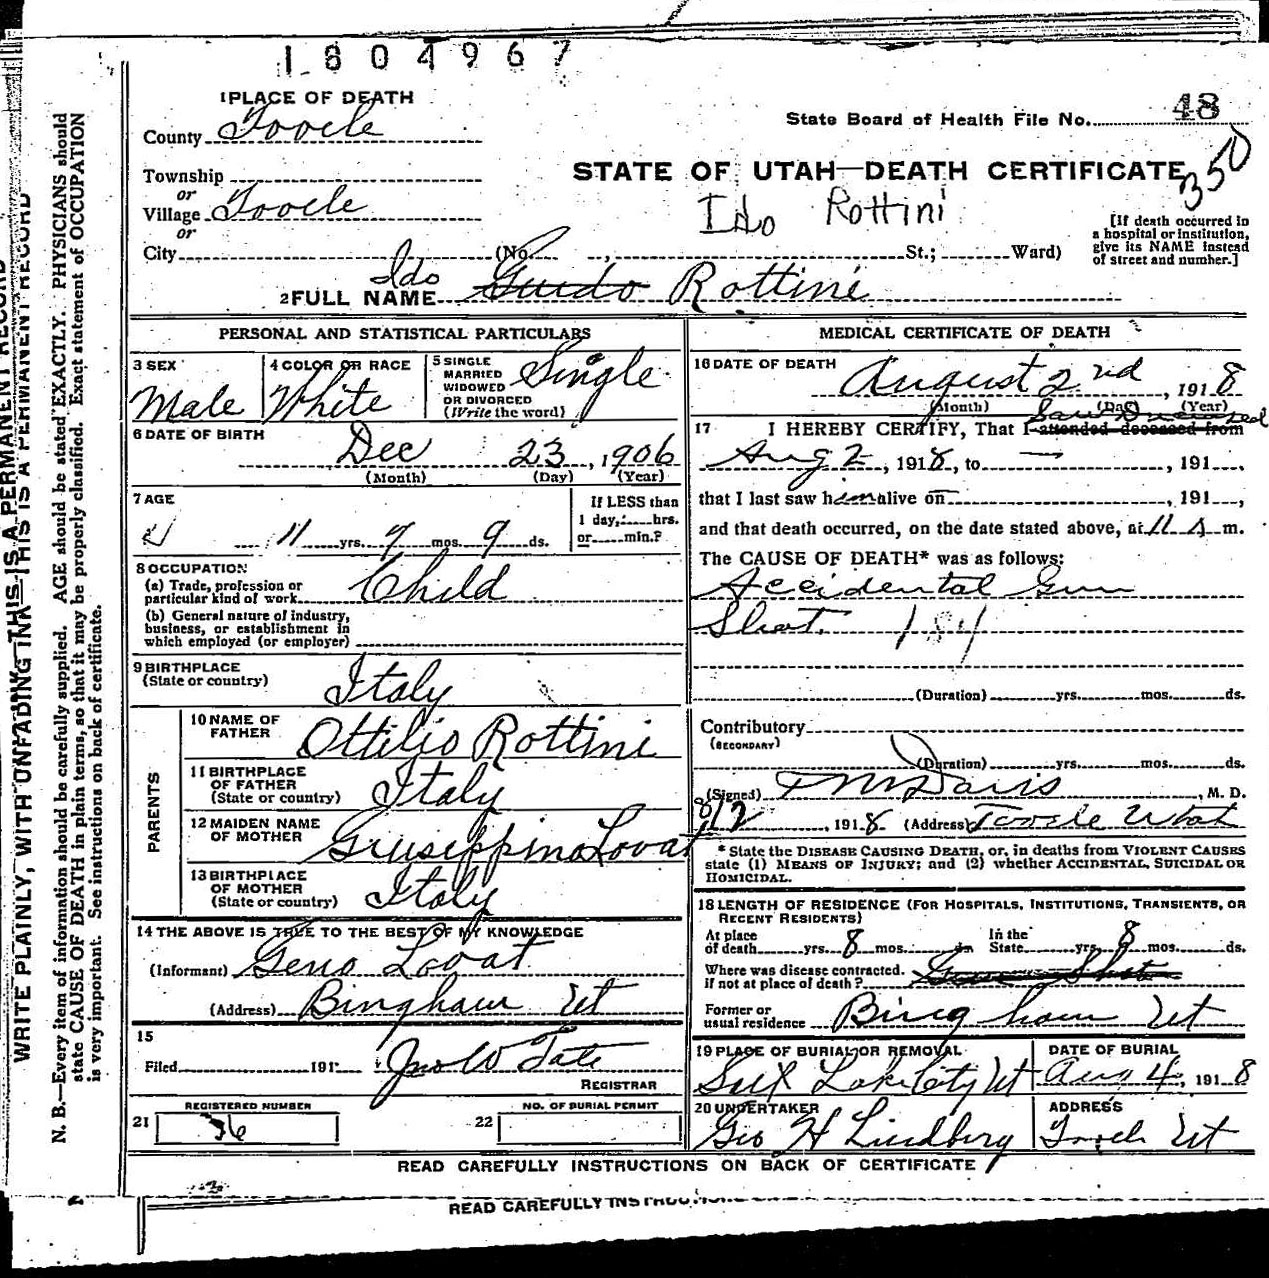 1804967
1 PLACE OF DEATH
County Tooele
State Board of Health File No. 48
350
Township
or
Village Tooele
or
City (No. , St.; Ward)
STATE OF UTAH—DEATH CERTIFICATE
Ido Rottini
[If death occurred in
a hospital or institution,
give its NAME instead
of street and number.]
2 FULL NAME Ido Guido Rottini
PERSONAL AND STATISTICAL PARTICULARS
3 SEX
Male
4 COLOR OR RACE
White
5 SINGLE
MARRIED
WIDOWED
OR DIVORCED
(Write the word)
Single
6 DATE OF BIRTH
Dec 23, 1906
(Month) (Day) (Year)
7 AGE
11 yrs. 7 mos. 9 ds.
If LESS than
1 day, hrs.
or min.?
8 OCCUPATION
(a) Trade, profession or
particular kind of work Child
(b) General nature of industry,
business, or establishment in
which employed (or employer)
9 BIRTHPLACE
(State or country)
Italy
PARENTS
10 NAME OF
FATHER
Ottilio Rottini
11 BIRTHPLACE
OF FATHER
(State or country)
Italy
12 MAIDEN NAME
OF MOTHER
Giuseppina Lovat
13 BIRTHPLACE
OF MOTHER
(State or country)
Italy
14 THE ABOVE IS TRUE TO THE BEST OF MY KNOWLEDGE
(Informant) Geno Lovat
(Address) Bingham Ut
15
Filed 191 Jno W Tate
REGISTRAR
REGISTERED NUMBER
21 36
NO. OF BURIAL PERMIT
22
MEDICAL CERTIFICATE OF DEATH
16 DATE OF DEATH
August 2nd, 1918
(Month) (Day) (Year)
17 I HEREBY CERTIFY, That I attended deceased from
Saw Deceased
Aug 2, 1918, to — , 191 ,
that I last saw him alive on — , 191 ,
and that death occurred, on the date stated above, at 11 A m.
The CAUSE OF DEATH* was as follows:
Accidental Gun
Shot. 184
(Duration) yrs. mos. ds.
Contributory
(SECONDARY)
(Duration) yrs. mos. ds.
(Signed) Davis, M. D.
8/2, 1918 (Address) Tooele Utah
* State the DISEASE CAUSING DEATH, or, in deaths from VIOLENT CAUSES
state (1) MEANS OF INJURY; and (2) whether ACCIDENTAL, SUICIDAL OR
HOMICIDAL.
18 LENGTH OF RESIDENCE (FOR HOSPITALS, INSTITUTIONS, TRANSIENTS, OR
RECENT RESIDENTS)
At place
of death yrs. 8 mos. ds.
In the
State yrs. 8 mos. ds.
Where was disease contracted.
if not at place of death? Gun Shot
Former or
usual residence Bingham Ut
19 PLACE OF BURIAL OR REMOVAL
Salt Lake City Ut
DATE OF BURIAL
Aug 4, 1918
20 UNDERTAKER
Geo H Lindberg
ADDRESS
Tooele Ut
READ CAREFULLY INSTRUCTIONS ON BACK OF CERTIFICATE
READ CAREFULLY
WRITE PLAINLY, WITH UNFADING INK—THIS IS A PERMANENT RECORD
N. B.—Every item of information should be carefully supplied. AGE should be stated EXACTLY. PHYSICIANS should
state CAUSE OF DEATH in plain terms, so that it may be properly classified. Exact statement of OCCUPATION
is very important. See instructions on back of certificate.